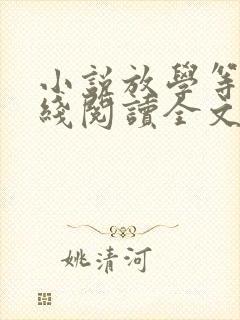 小説放學等
綫閱讀全文
姚清河